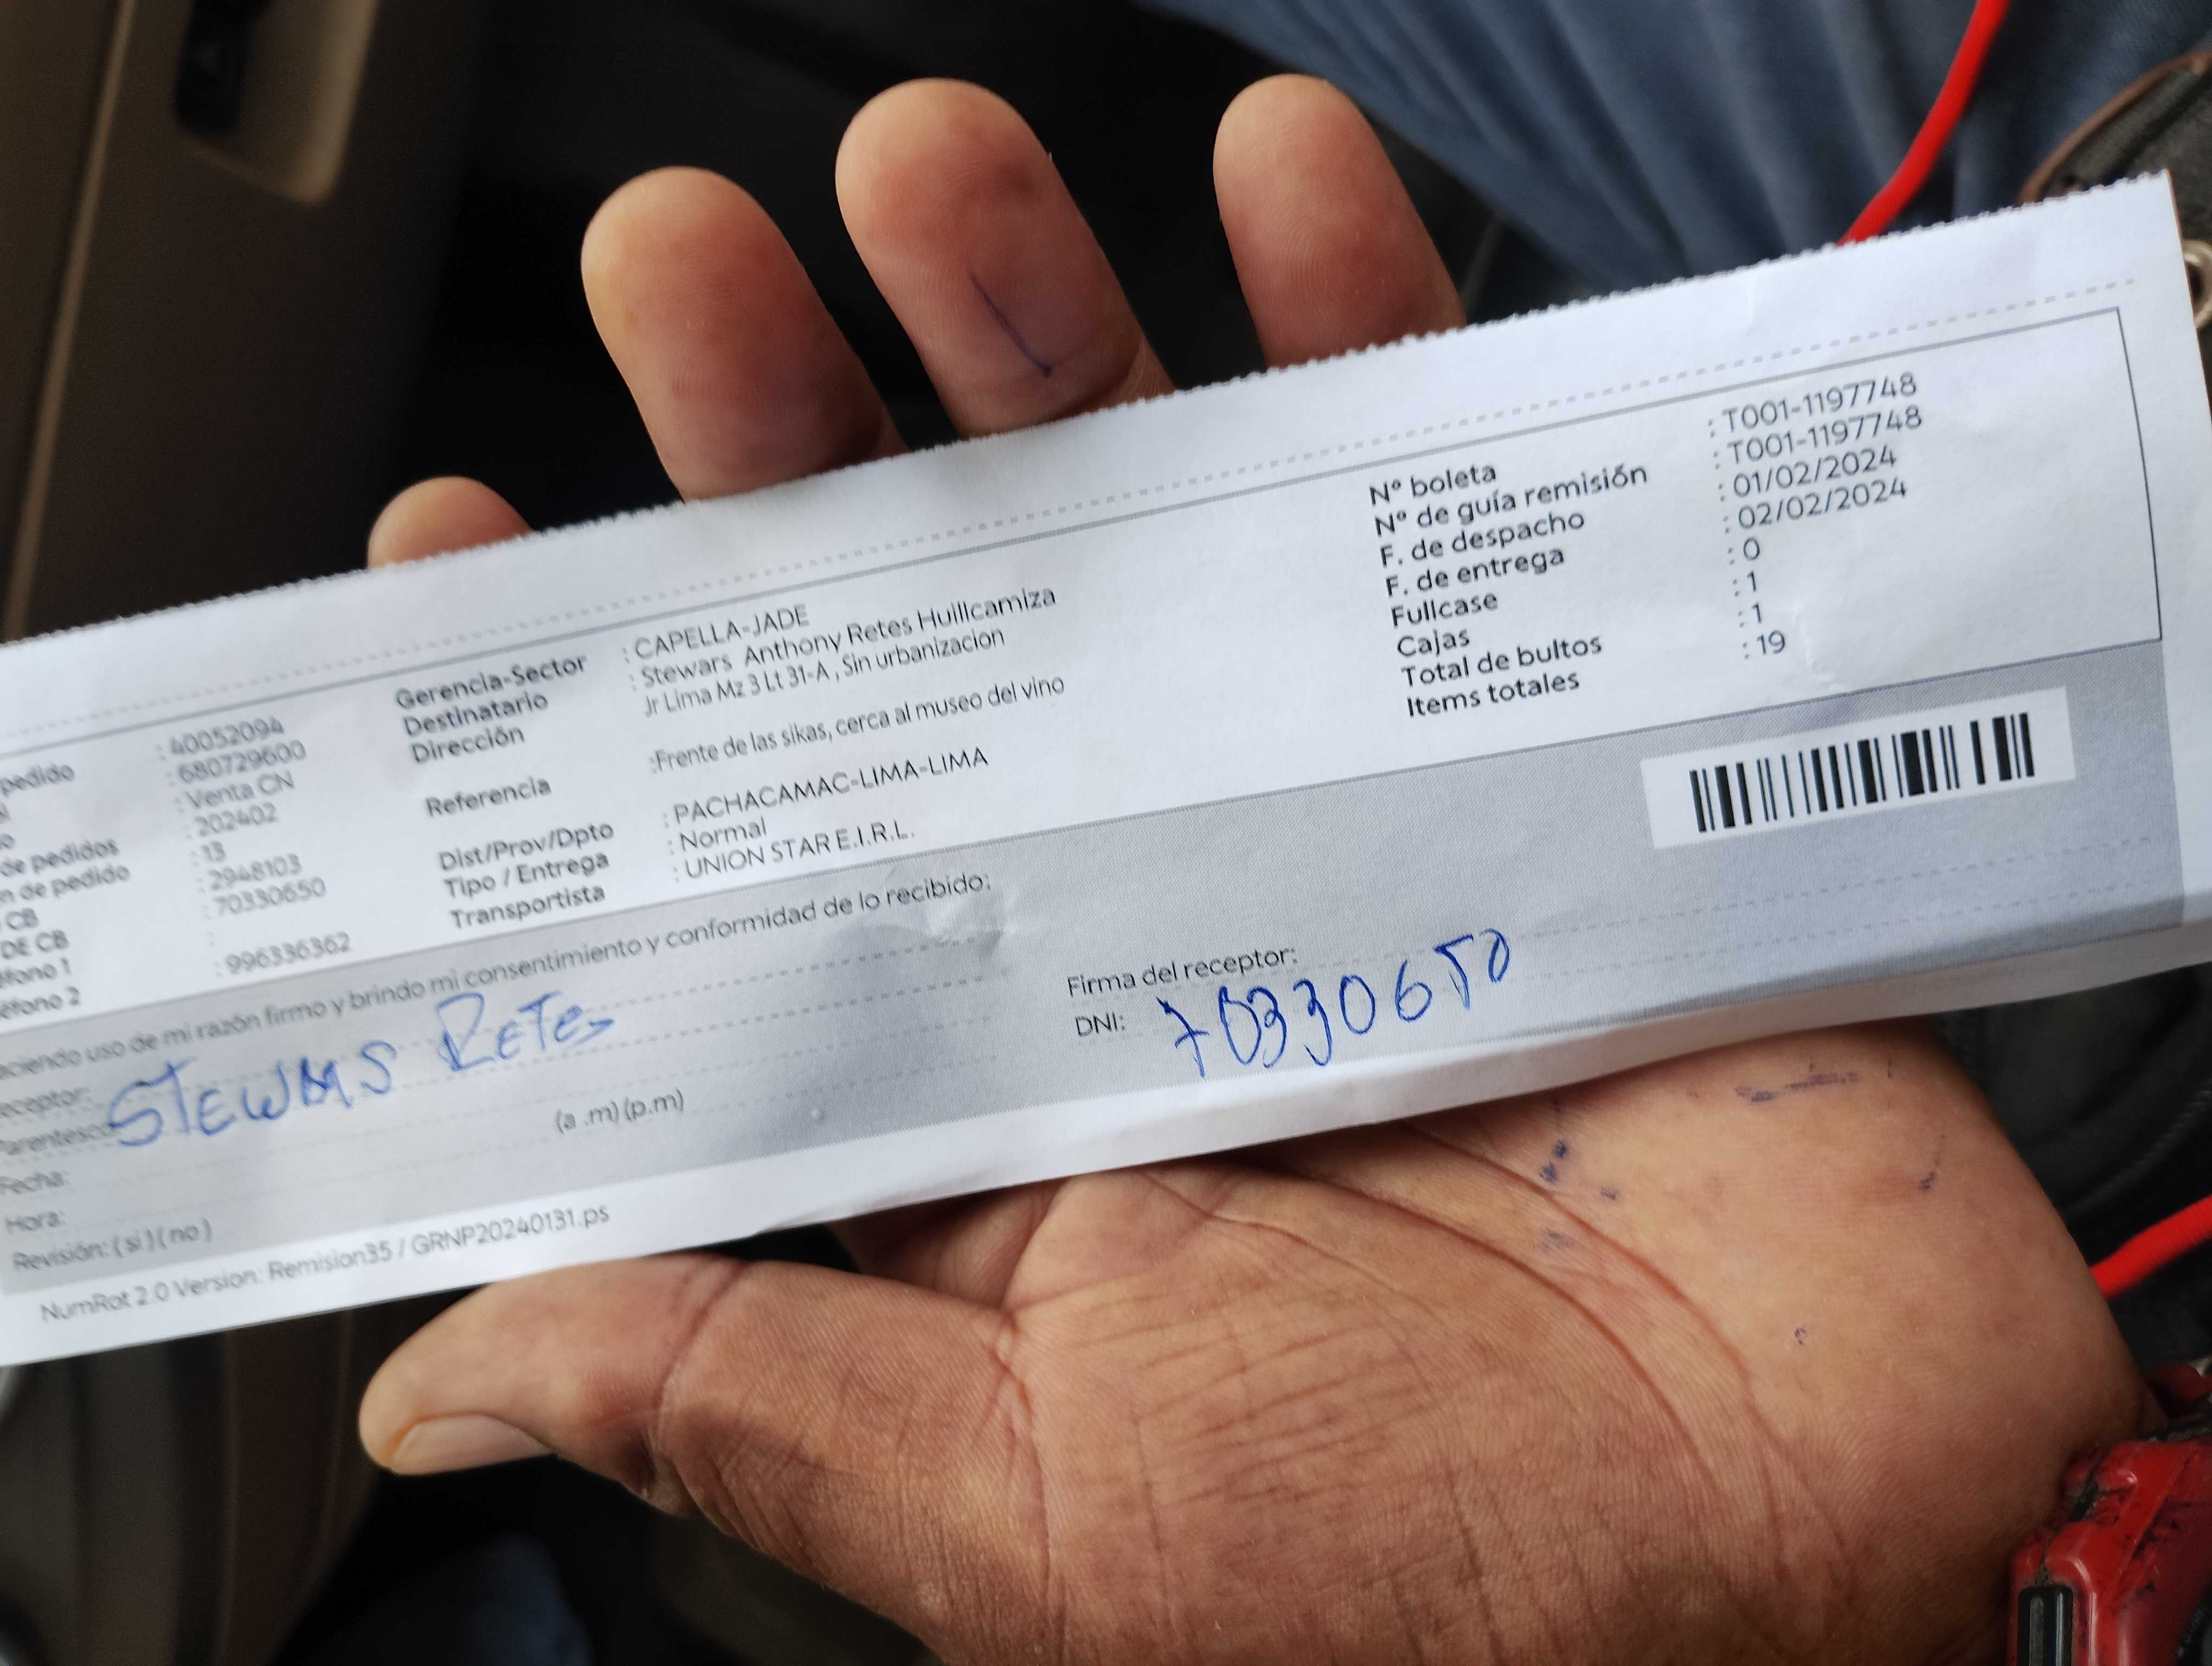 pedido : 40052094
: 680729600
: Venta CN
de pedidos : 202402
n de pedido : 13
CB : 2948103
DE CB : 70330650
éfono 1 :
éfono 2 : 996336362
Gerencia-Sector : CAPELLA-JADE
Destinatario : Stewars Anthony Retes Huillcamiza
Dirección : Jr Lima Mz 3 Lt 31-A , Sin urbanizacion
Referencia :Frente de las sikas, cerca al museo del vino
Dist/Prov/Dpto : PACHACAMAC-LIMA-LIMA
Tipo / Entrega : Normal
Transportista : UNION STAR E.I.R.L.
Nº boleta : T001-1197748
Nº de guía remisión : T001-1197748
F. de despacho : 01/02/2024
F. de entrega : 02/02/2024
Fullcase : 0
Cajas : 1
Total de bultos : 1
Items totales : 19
aciendo uso de mi razón firmo y brindo mi consentimiento y conformidad de lo recibido:
eceptor: STEWARS RETES
Parentesco
Fecha:
Hora: (a .m) (p.m)
Revisión: ( si ) ( no )
Firma del receptor:
DNI: 70330650
NumRot 2.0 Version: Remision35 / GRNP20240131.ps